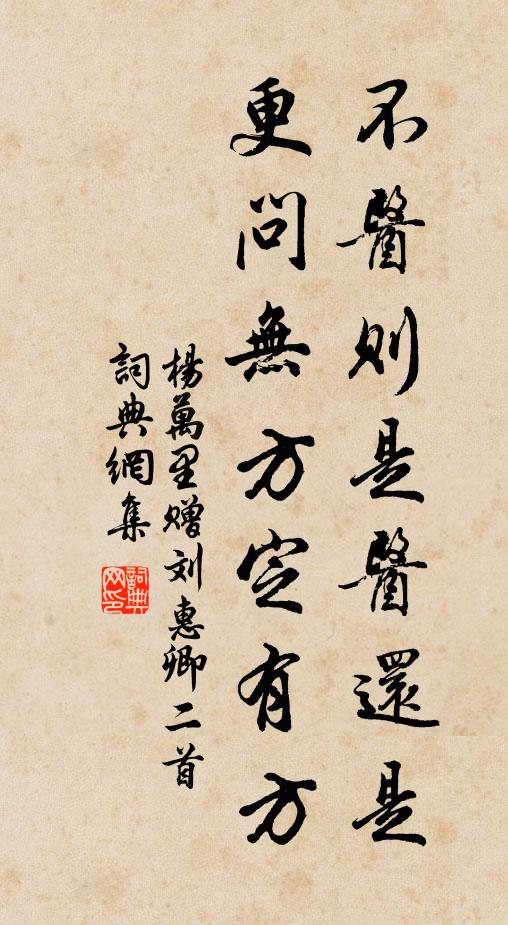 不醫則是醫還是
更問無方定有方
楊萬里贈刘惠卿二首
詞典網集
詞典网印